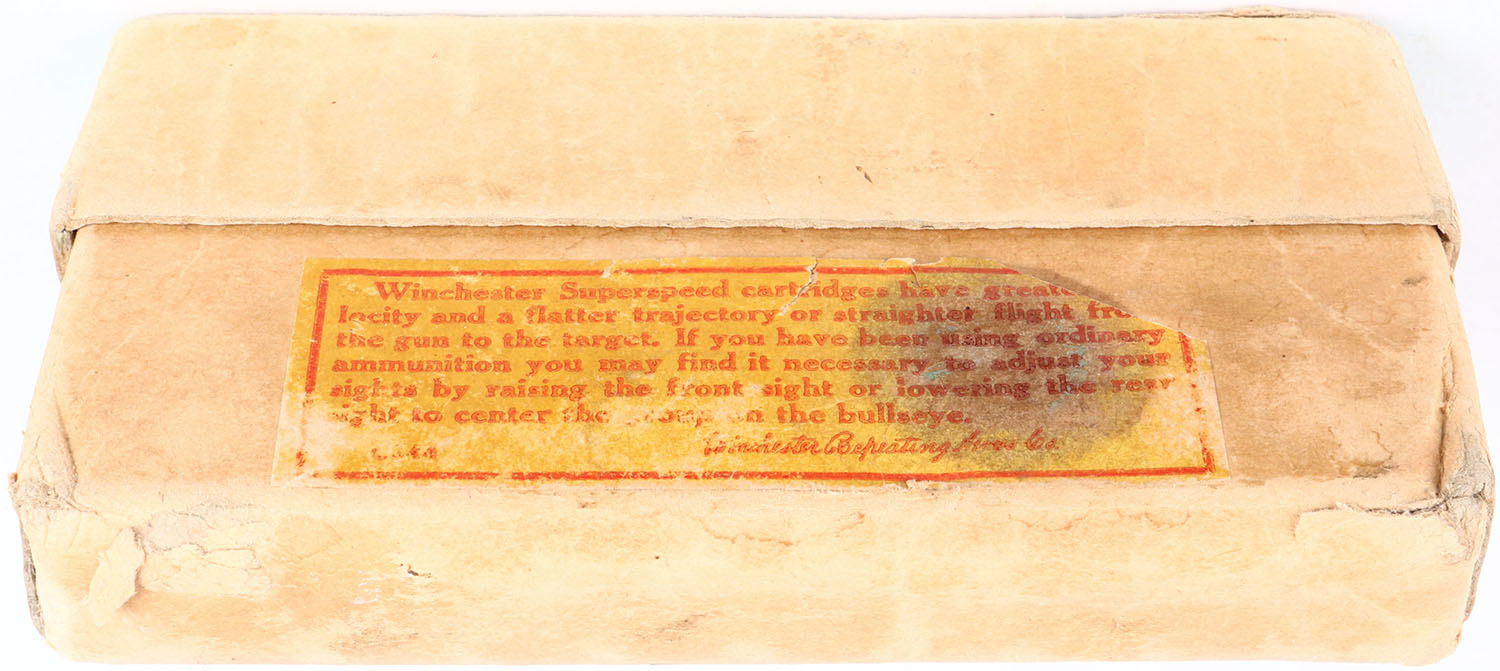 Winchester Superspeed cartridges have greate
locity and a flatter trajectory or straighter flight fro
the gun to the target. If you have been using ordinary
ammunition you may find it necessary to adjust your
sights by raising the front sight or lowering the rear
sight to center the group on the bullseye.
Winchester Repeating Arms Co.